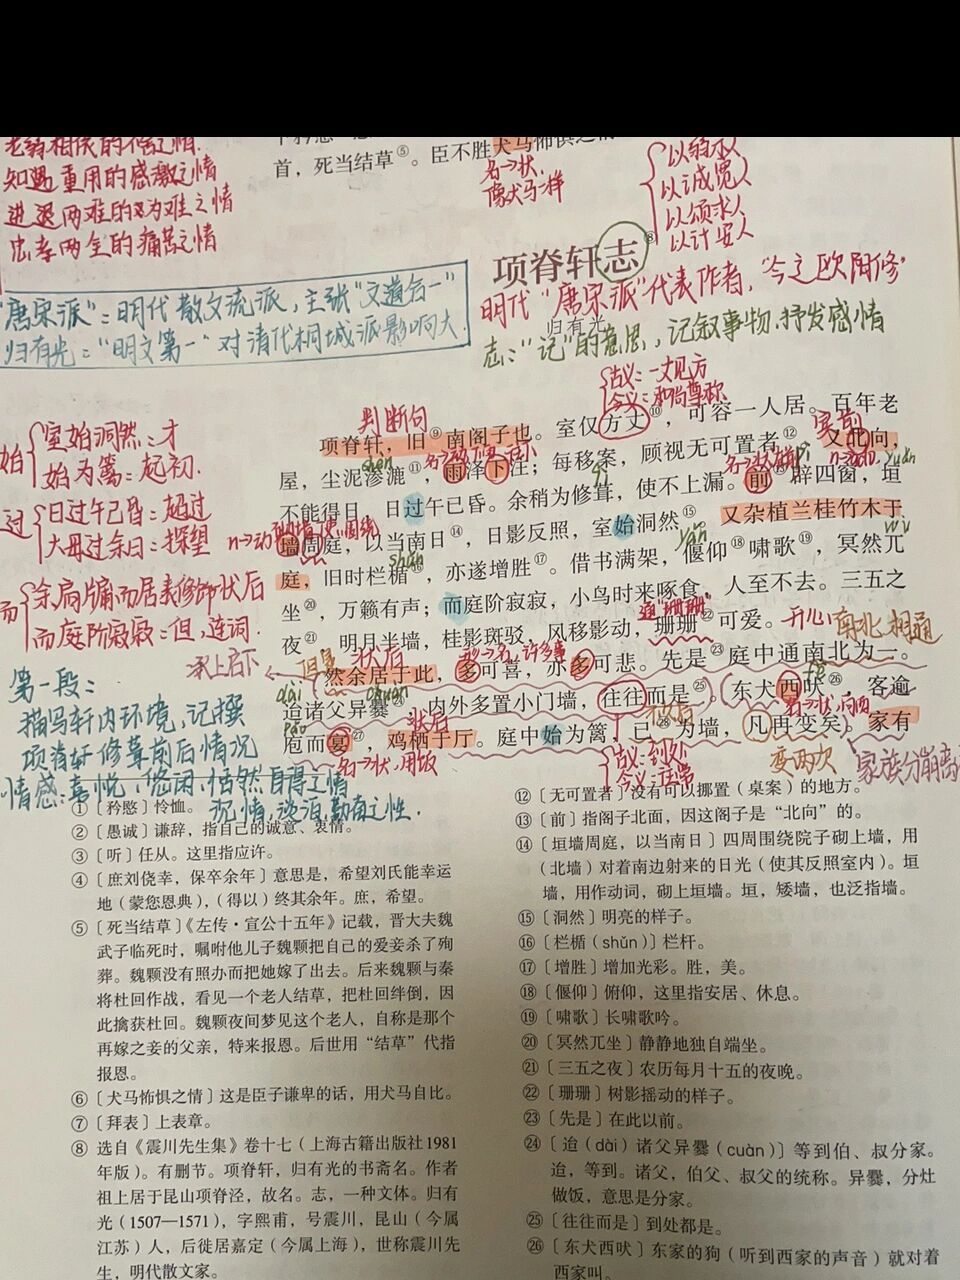 老弱相依的
知遇重用的感激之情
进退两难的为难之情
忠孝两全的痛苦之情
首，死当结草⑤。臣不胜犬马怖惧之情
名→状
像犬马一样
以诚
以颂求人
以计安人
项脊轩志⑧
明代“唐宋派”代表作者，“今之欧阳修”
归有光
志：“记”的意思，记叙事物、抒发感情
“唐宋派”：明代散文流派，主张“文道合一”
归有光：“明文第一”对清代桐城派影响大
古义：一丈见方
今义：和尚尊称
判断句
项脊轩，旧⑨南阁子也。室仅方丈⑩，可容一人居。百年老
屋，尘泥渗漉⑪，雨泽下注；每移案，顾视无可置者⑫。又北向，
不能得日，日过午已昏。余稍为修葺，使不上漏。前⑬辟四窗，垣
墙周庭，以当南日⑭，日影反照，室始洞然⑮。又杂植兰桂竹木于
庭，旧时栏楯⑯，亦遂增胜⑰。借书满架，偃仰⑱啸歌⑲，冥然兀
坐⑳，万籁有声；而庭阶寂寂，小鸟时来啄食，人至不去。三五之
夜㉑，明月半墙，桂影斑驳，风移影动，珊珊㉒可爱。
然余居于此，多可喜，亦多可悲。先是㉓庭中通南北为一。
迨诸父异爨㉔，内外多置小门墙，往往而是㉕，东犬西吠㉖，客逾
庖而宴㉗，鸡栖于厅。庭中始为篱，已㉘为墙，凡再变矣。家有
始
室始洞然：才
始为篱：起初.
过
日过午已昏：超过
大母过余曰：探望
而
余扃牖而居表修饰状后
而庭阶寂寂：但，连词.
承上启下
但是
状后
南北相通
名→状，向西
名→状，用饭
古义：到处
今义：经常
变两次
家族分崩离
第一段：
描写轩内环境，记撰
项脊轩修葺前后情况
情感：喜悦、悠闲、怡然自得之情
①〔矜愍〕怜恤。
②〔愚诚〕谦辞，指自己的诚意、衷情。
③〔听〕任从。这里指应许。
④〔庶刘侥幸，保卒余年〕意思是，希望刘氏能幸运
地（蒙您恩典），（得以）终其余年。庶，希望。
⑤〔死当结草〕《左传·宣公十五年》记载，晋大夫魏
武子临死时，嘱咐他儿子魏颗把自己的爱妾杀了殉
葬。魏颗没有照办而把她嫁了出去。后来魏颗与秦
将杜回作战，看见一个老人结草，把杜回绊倒，因
此擒获杜回。魏颗夜间梦见这个老人，自称是那个
再嫁之妾的父亲，特来报恩。后世用“结草”代指
报恩。
⑥〔犬马怖惧之情〕这是臣子谦卑的话，用犬马自比。
⑦〔拜表〕上表章。
⑧ 选自《震川先生集》卷十七（上海古籍出版社1981
年版）。有删节。项脊轩，归有光的书斋名。作者
祖上居于昆山项脊泾，故名。志，一种文体。归有
光（1507—1571），字熙甫，号震川，昆山（今属
江苏）人，后徙居嘉定（今属上海），世称震川先
生，明代散文家。
⑫〔无可置者〕没有可以挪置（桌案）的地方。
⑬〔前〕指阁子北面，因这阁子是“北向”的。
⑭〔垣墙周庭，以当南日〕四周围绕院子砌上墙，用
（北墙）对着南边射来的日光（使其反照室内）。垣
墙，用作动词，砌上垣墙。垣，矮墙，也泛指墙。
⑮〔洞然〕明亮的样子。
⑯〔栏楯（shǔn）〕栏杆。
⑰〔增胜〕增加光彩。胜，美。
⑱〔偃仰〕俯仰，这里指安居、休息。
⑲〔啸歌〕长啸歌吟。
⑳〔冥然兀坐〕静静地独自端坐。
㉑〔三五之夜〕农历每月十五的夜晚。
㉒〔珊珊〕树影摇动的样子。
㉓〔先是〕在此以前。
㉔〔迨（dài）诸父异爨（cuàn）〕等到伯、叔分家。
迨，等到。诸父，伯父、叔父的统称。异爨，分灶
做饭，意思是分家。
㉕〔往往而是〕到处都是。
㉖〔东犬西吠〕东家的狗（听到西家的声音）就对着
西家叫。